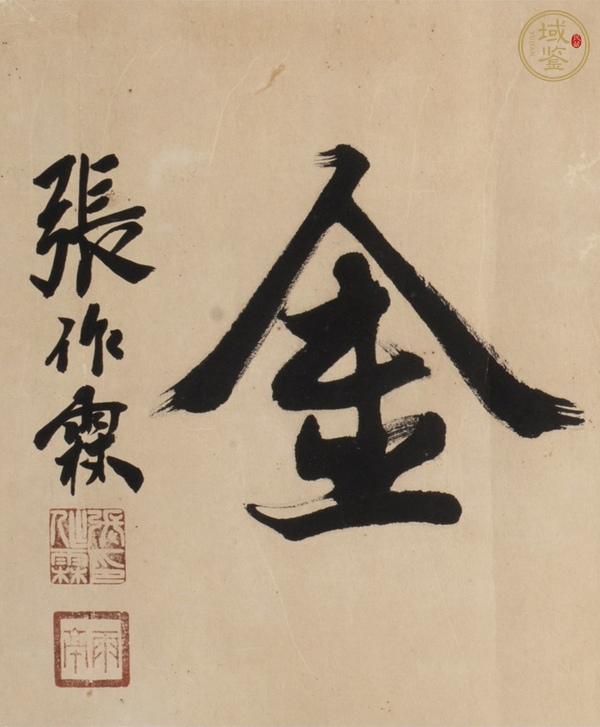 金
張作霖
張印作霖
雨亭
域鑒